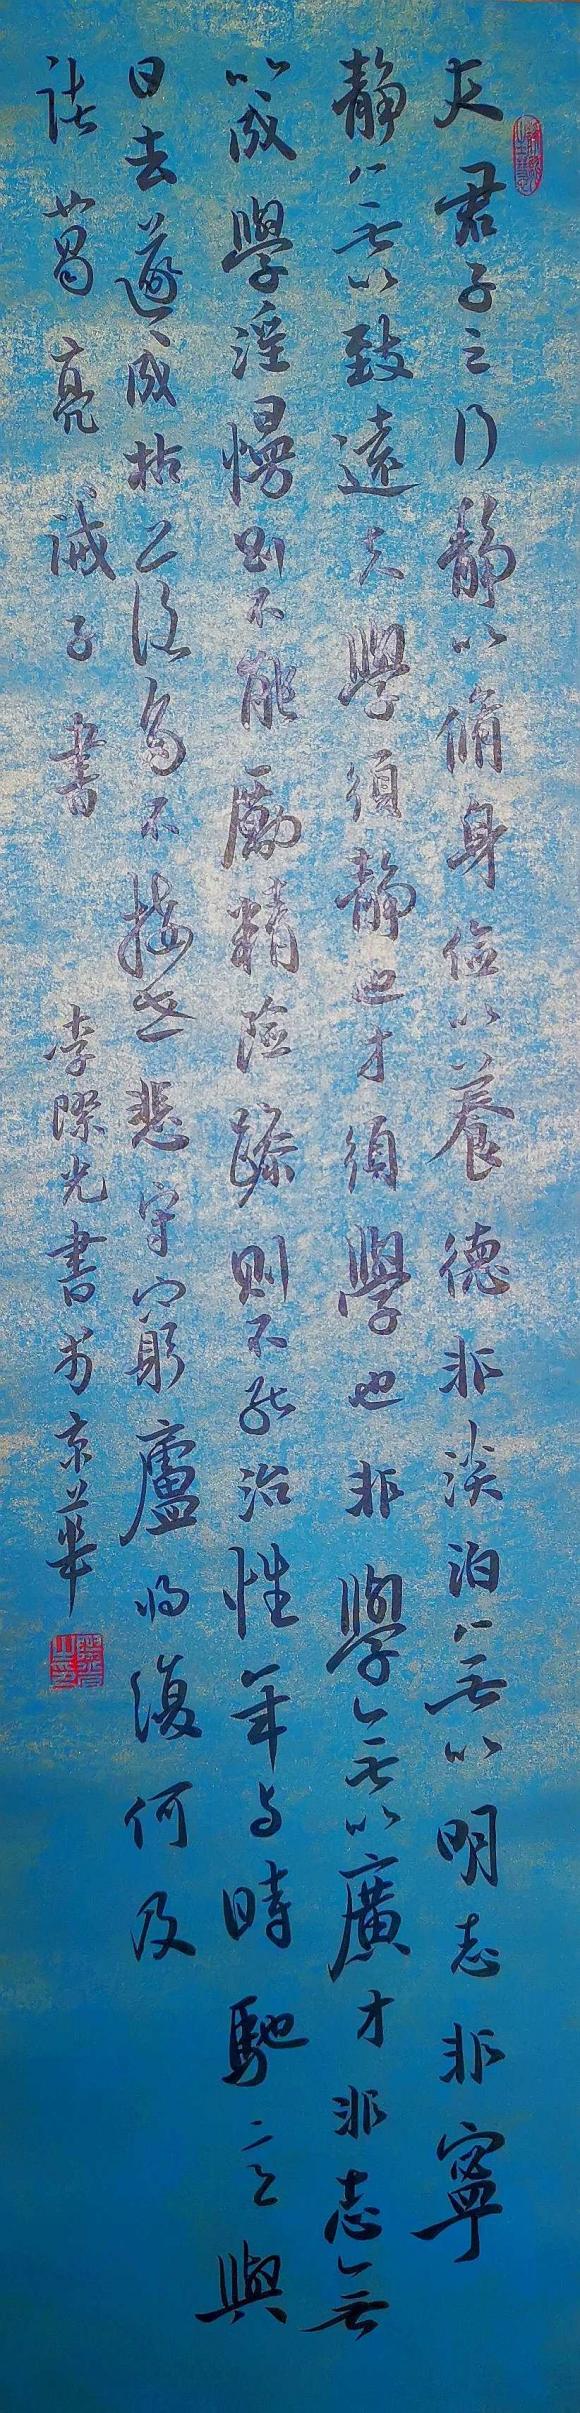 夫君子之行静以脩身儉以養德非淡泊無以明志非寧
静無以致遠夫學須静也才須學也非學無以廣才非志無
以成學淫慢則不能勵精險躁則不能治性年与時馳意與
日去遂成枯落多不接世悲守窮廬将復何及
諸葛亮誡子書 李際光書於京華